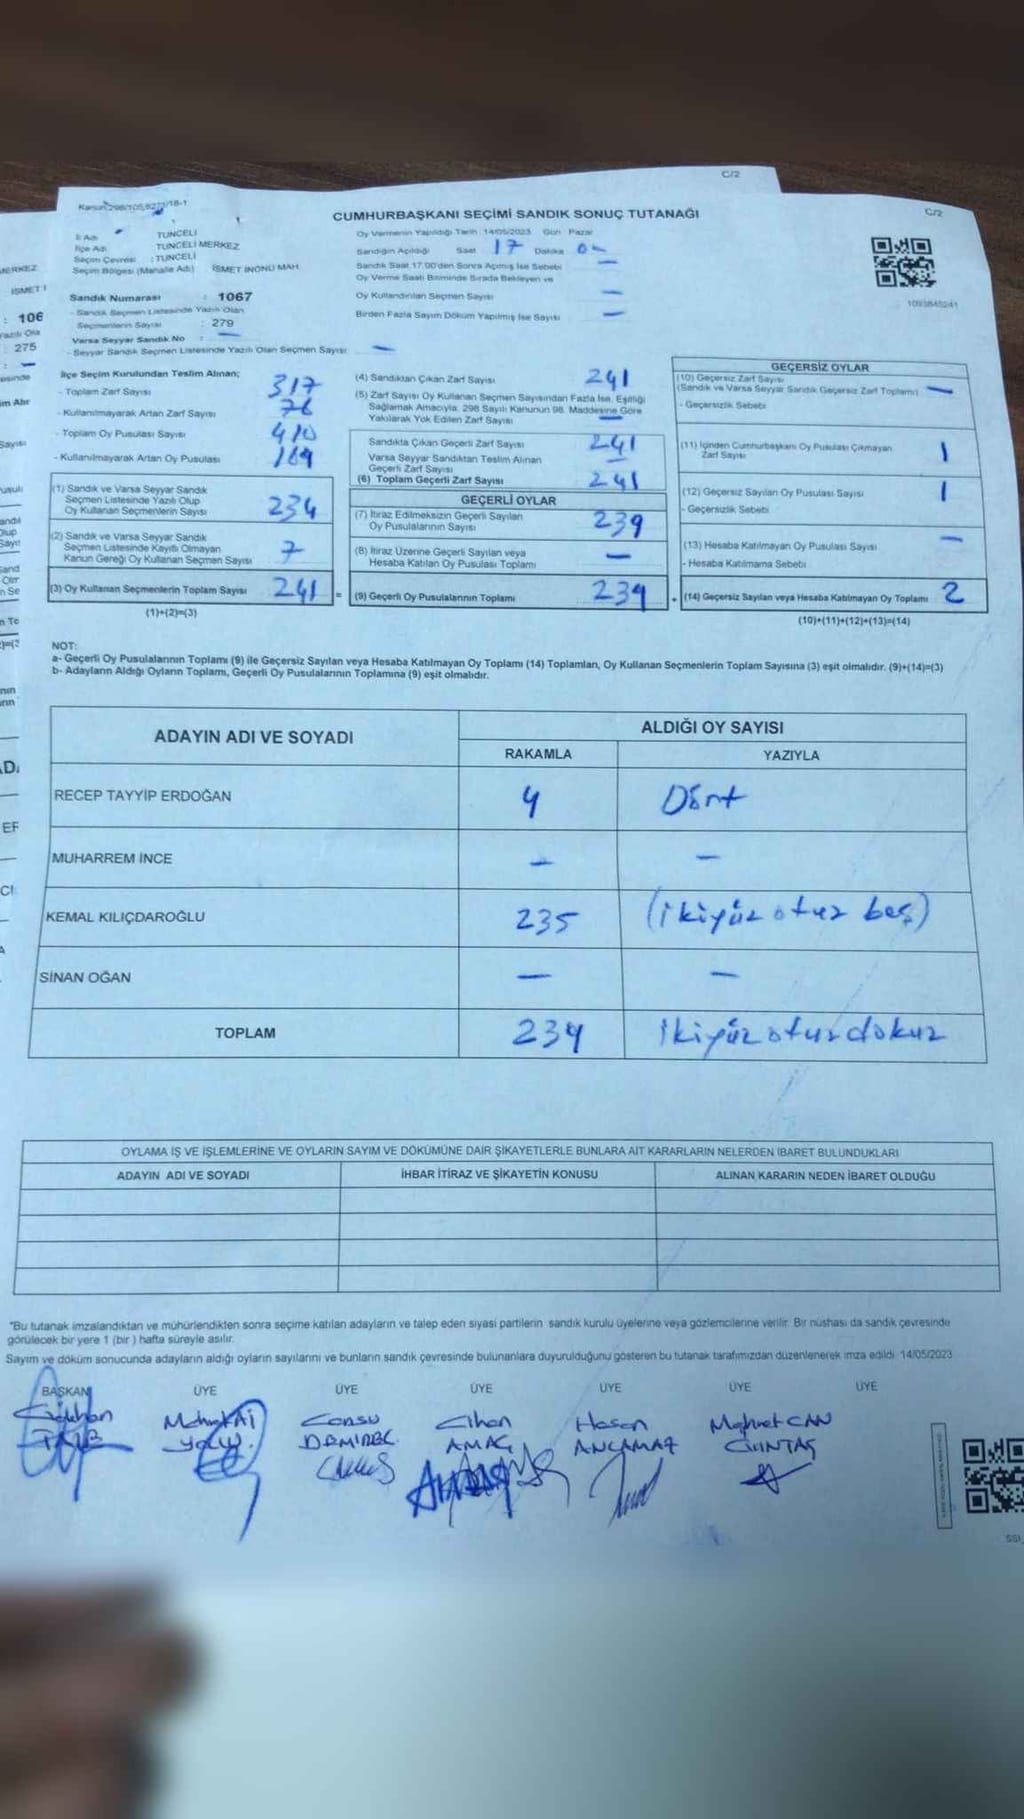 C/2
Kanun:298/105,8271/18-1
C/2
CUMHURBAŞKANI SEÇİMİ SANDIK SONUÇ TUTANAĞI
İl Adı : TUNCELİ
İlçe Adı : TUNCELİ MERKEZ
Seçim Çevresi : TUNCELİ
Seçim Bölgesi (Mahalle Adı) İSMET İNÖNÜ MAH.
Oy Vermenin Yapıldığı Tarih 14/05/2023 Gün Pazar
Sandığın Açıldığı Saat 17 Dakika 0 -
Sandık Saat 17:00'den Sonra Açılmış İse Sebebi -
Oy Verme Saati Bitiminde Sırada Bekleyen ve
Oy Kullandırılan Seçmen Sayısı -
Birden Fazla Sayım Döküm Yapılmış İse Sayısı -
Sandık Numarası : 1067
- Sandık Seçmen Listesinde Yazılı Olan
Seçmenlerin Sayısı : 279
Varsa Seyyar Sandık No : -
- Seyyar Sandık Seçmen Listesinde Yazılı Olan Seçmen Sayısı: -
İlçe Seçim Kurulundan Teslim Alınan;
- Toplam Zarf Sayısı 317
- Kullanılmayarak Artan Zarf Sayısı 76
- Toplam Oy Pusulası Sayısı 410
- Kullanılmayarak Artan Oy Pusulası 169
(1) Sandık ve Varsa Seyyar Sandık
Seçmen Listesinde Yazılı Olup
Oy Kullanan Seçmenlerin Sayısı 234
(2) Sandık ve Varsa Seyyar Sandık
Seçmen Listesinde Kayıtlı Olmayan
Kanun Gereği Oy Kullanan Seçmen Sayısı 7
(3) Oy Kullanan Seçmenlerin Toplam Sayısı 241 =
(1)+(2)=(3)
(4) Sandıktan Çıkan Zarf Sayısı 241
(5) Zarf Sayısı Oy Kullanan Seçmen Sayısından Fazla İse, Eşitliği
Sağlamak Amacıyla, 298 Sayılı Kanunun 98. Maddesine Göre
Yakılarak Yok Edilen Zarf Sayısı -
Sandıkta Çıkan Geçerli Zarf Sayısı 241
Varsa Seyyar Sandıktan Teslim Alınan
Geçerli Zarf Sayısı -
(6) Toplam Geçerli Zarf Sayısı 241
GEÇERLİ OYLAR
(7) İtiraz Edilmeksizin Geçerli Sayılan
Oy Pusulalarının Sayısı 239
(8) İtiraz Üzerine Geçerli Sayılan veya
Hesaba Katılan Oy Pusulası Toplamı -
(9) Geçerli Oy Pusulalarının Toplamı 239 +
GEÇERSİZ OYLAR
(10) Geçersiz Zarf Sayısı
(Sandık ve Varsa Seyyar Sandık Geçersiz Zarf Toplamı) -
- Geçersizlik Sebebi
(11) İçinden Cumhurbaşkanı Oy Pusulası Çıkmayan
Zarf Sayısı 1
(12) Geçersiz Sayılan Oy Pusulası Sayısı 1
- Geçersizlik Sebebi
(13) Hesaba Katılmayan Oy Pusulası Sayısı -
- Hesaba Katılmama Sebebi
(14) Geçersiz Sayılan veya Hesaba Katılmayan Oy Toplamı 2
(10)+(11)+(12)+(13)=(14)
NOT:
a- Geçerli Oy Pusulalarının Toplamı (9) ile Geçersiz Sayılan veya Hesaba Katılmayan Oy Toplamı (14) Toplamları, Oy Kullanan Seçmenlerin Toplam Sayısına (3) eşit olmalıdır. (9)+(14)=(3)
b- Adayların Aldığı Oyların Toplamı, Geçerli Oy Pusulalarının Toplamına (9) eşit olmalıdır.
ADAYIN ADI VE SOYADI ALDIĞI OY SAYISI
RAKAMLA YAZIYLA
RECEP TAYYİP ERDOĞAN 4 Dört
MUHARREM İNCE - -
KEMAL KILIÇDAROĞLU 235 (ikiyüz otuz beş)
SİNAN OĞAN - -
TOPLAM 239 ikiyüz otuz dokuz
OYLAMA İŞ VE İŞLEMLERİNE VE OYLARIN SAYIM VE DÖKÜMÜNE DAİR ŞİKAYETLERLE BUNLARA AİT KARARLARIN NELERDEN İBARET BULUNDUKLARI
ADAYIN ADI VE SOYADI İHBAR İTİRAZ VE ŞİKAYETİN KONUSU ALINAN KARARIN NEDEN İBARET OLDUĞU
"Bu tutanak imzalandıktan ve mühürlendikten sonra seçime katılan adayların ve talep eden siyasi partilerin sandık kurulu üyelerine veya gözlemcilerine verilir. Bir nüshası da sandık çevresinde
görülecek bir yere 1 (bir) hafta süreyle asılır.
Sayım ve döküm sonucunda adayların aldığı oyların sayılarını ve bunların sandık çevresinde bulunanlara duyurulduğunu gösteren bu tutanak tarafımızdan düzenlenerek imza edildi. 14/05/2023
BAŞKAN ÜYE ÜYE ÜYE ÜYE ÜYE ÜYE
Cansu Cihan Hasan Mehmet CAN
AMAÇ